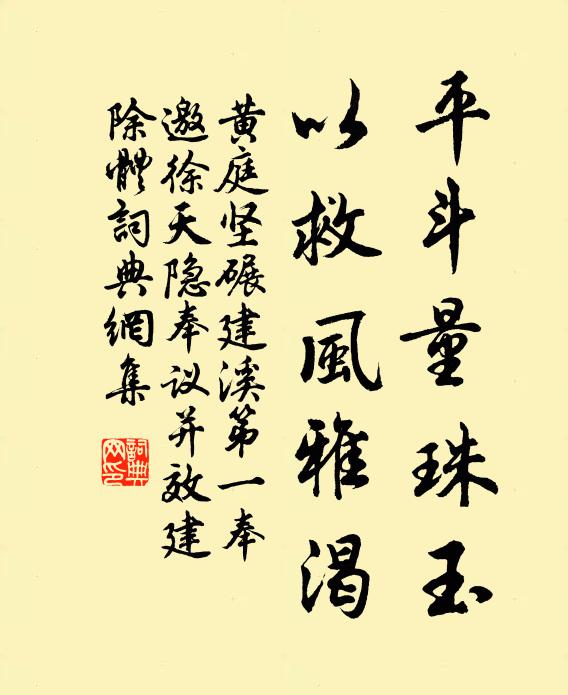 平斗量珠玉
以救風雅渴
黄庭坚碾建溪第一奉
邀徐天隐奉议并效建
除體詞典網集
詞典網印